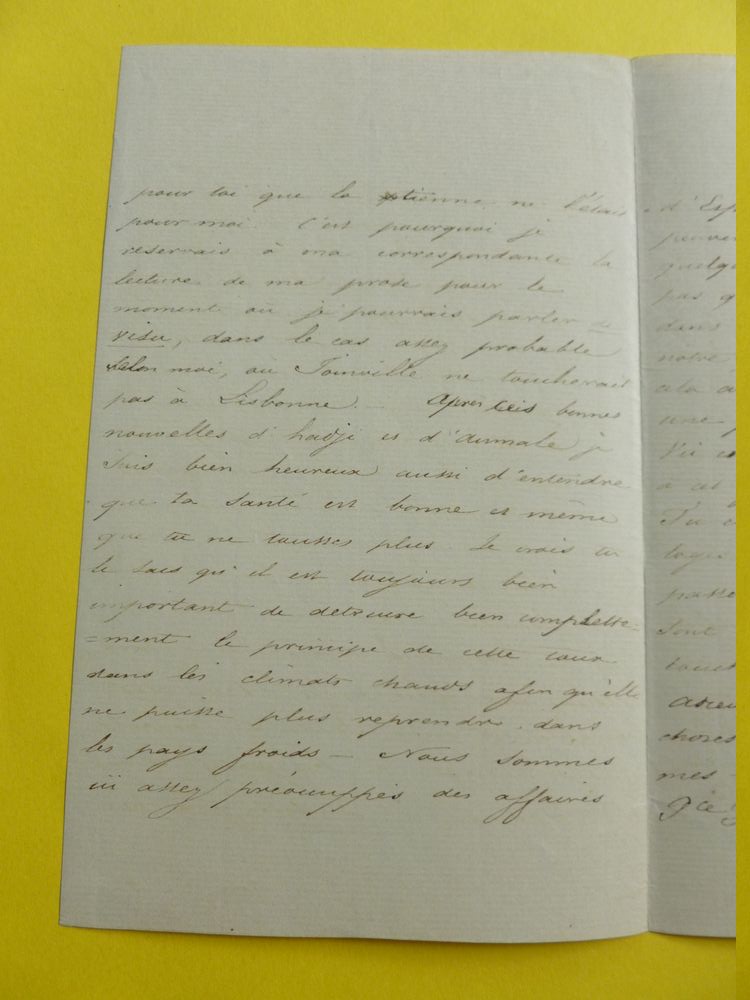 pour toi que la tienne ne l'était
pour moi. C'est pourquoi je
reservais à ma correspondante la
lecture de ma prose pour le
moment où je pourrais parler de
visu, dans le cas assez probable
selon moi, où Joinville ne toucherait
pas à Lisbonne. — Après les bonnes
nouvelles d'hadji et d'aumale je
suis bien heureux aussi d'entendre
que ta santé est bonne et même
que tu ne tousses plus. Je crois tu
le sais qu'il est toujours bien
important de detruire bien complette-
=ment le principe de cette toux
dans les climats chauds afin qu'elle
ne puisse plus reprendre dans
les pays froids — Nous sommes
ici assez préoccuppés des affaires
d'Esp
quelqu
pas q
dans
notre
à la
une
à cet
Tu
passe
sont
choses
mes